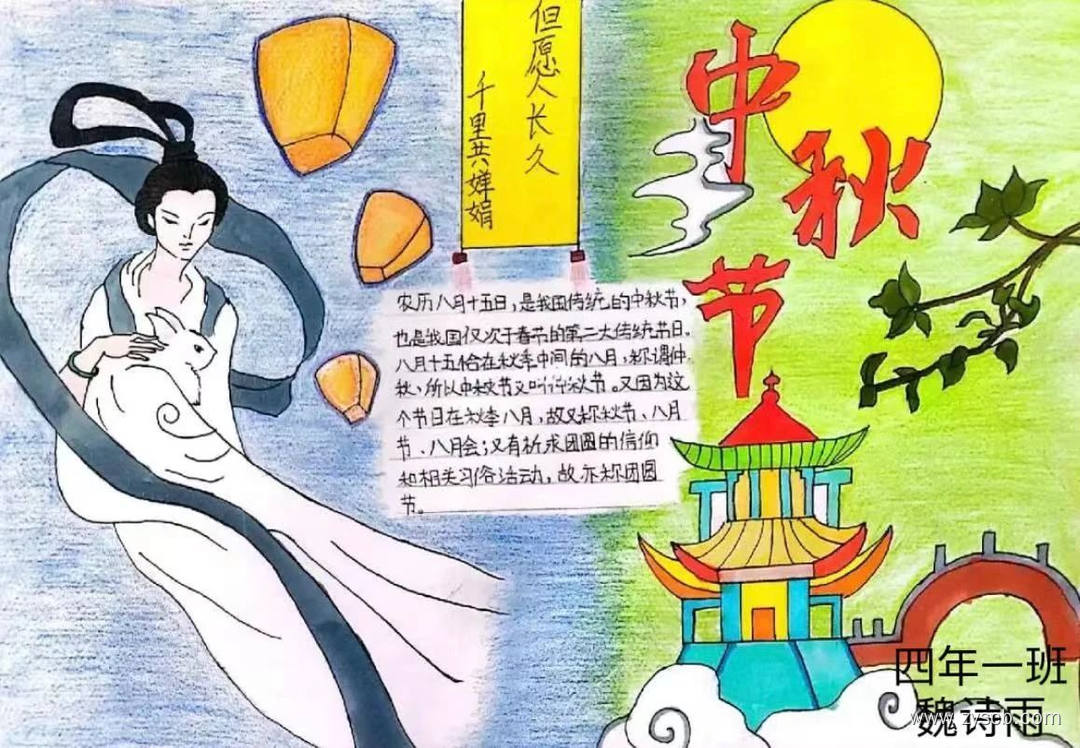 但愿人长久
千里共婵娟
中秋节
农历八月十五日，是我国传统的中秋节，
也是我国仅次于春节的第二大传统节日。
八月十五恰在秋季中间的八月，称谓仲
秋、所以中秋节又叫仲秋节。又因为这
个节日在秋季八月，故又称秋节、八月
节、八月会；又有祈求团圆的信仰
和相关习俗活动，故亦称团圆
节。
四年一班
魏诗雨